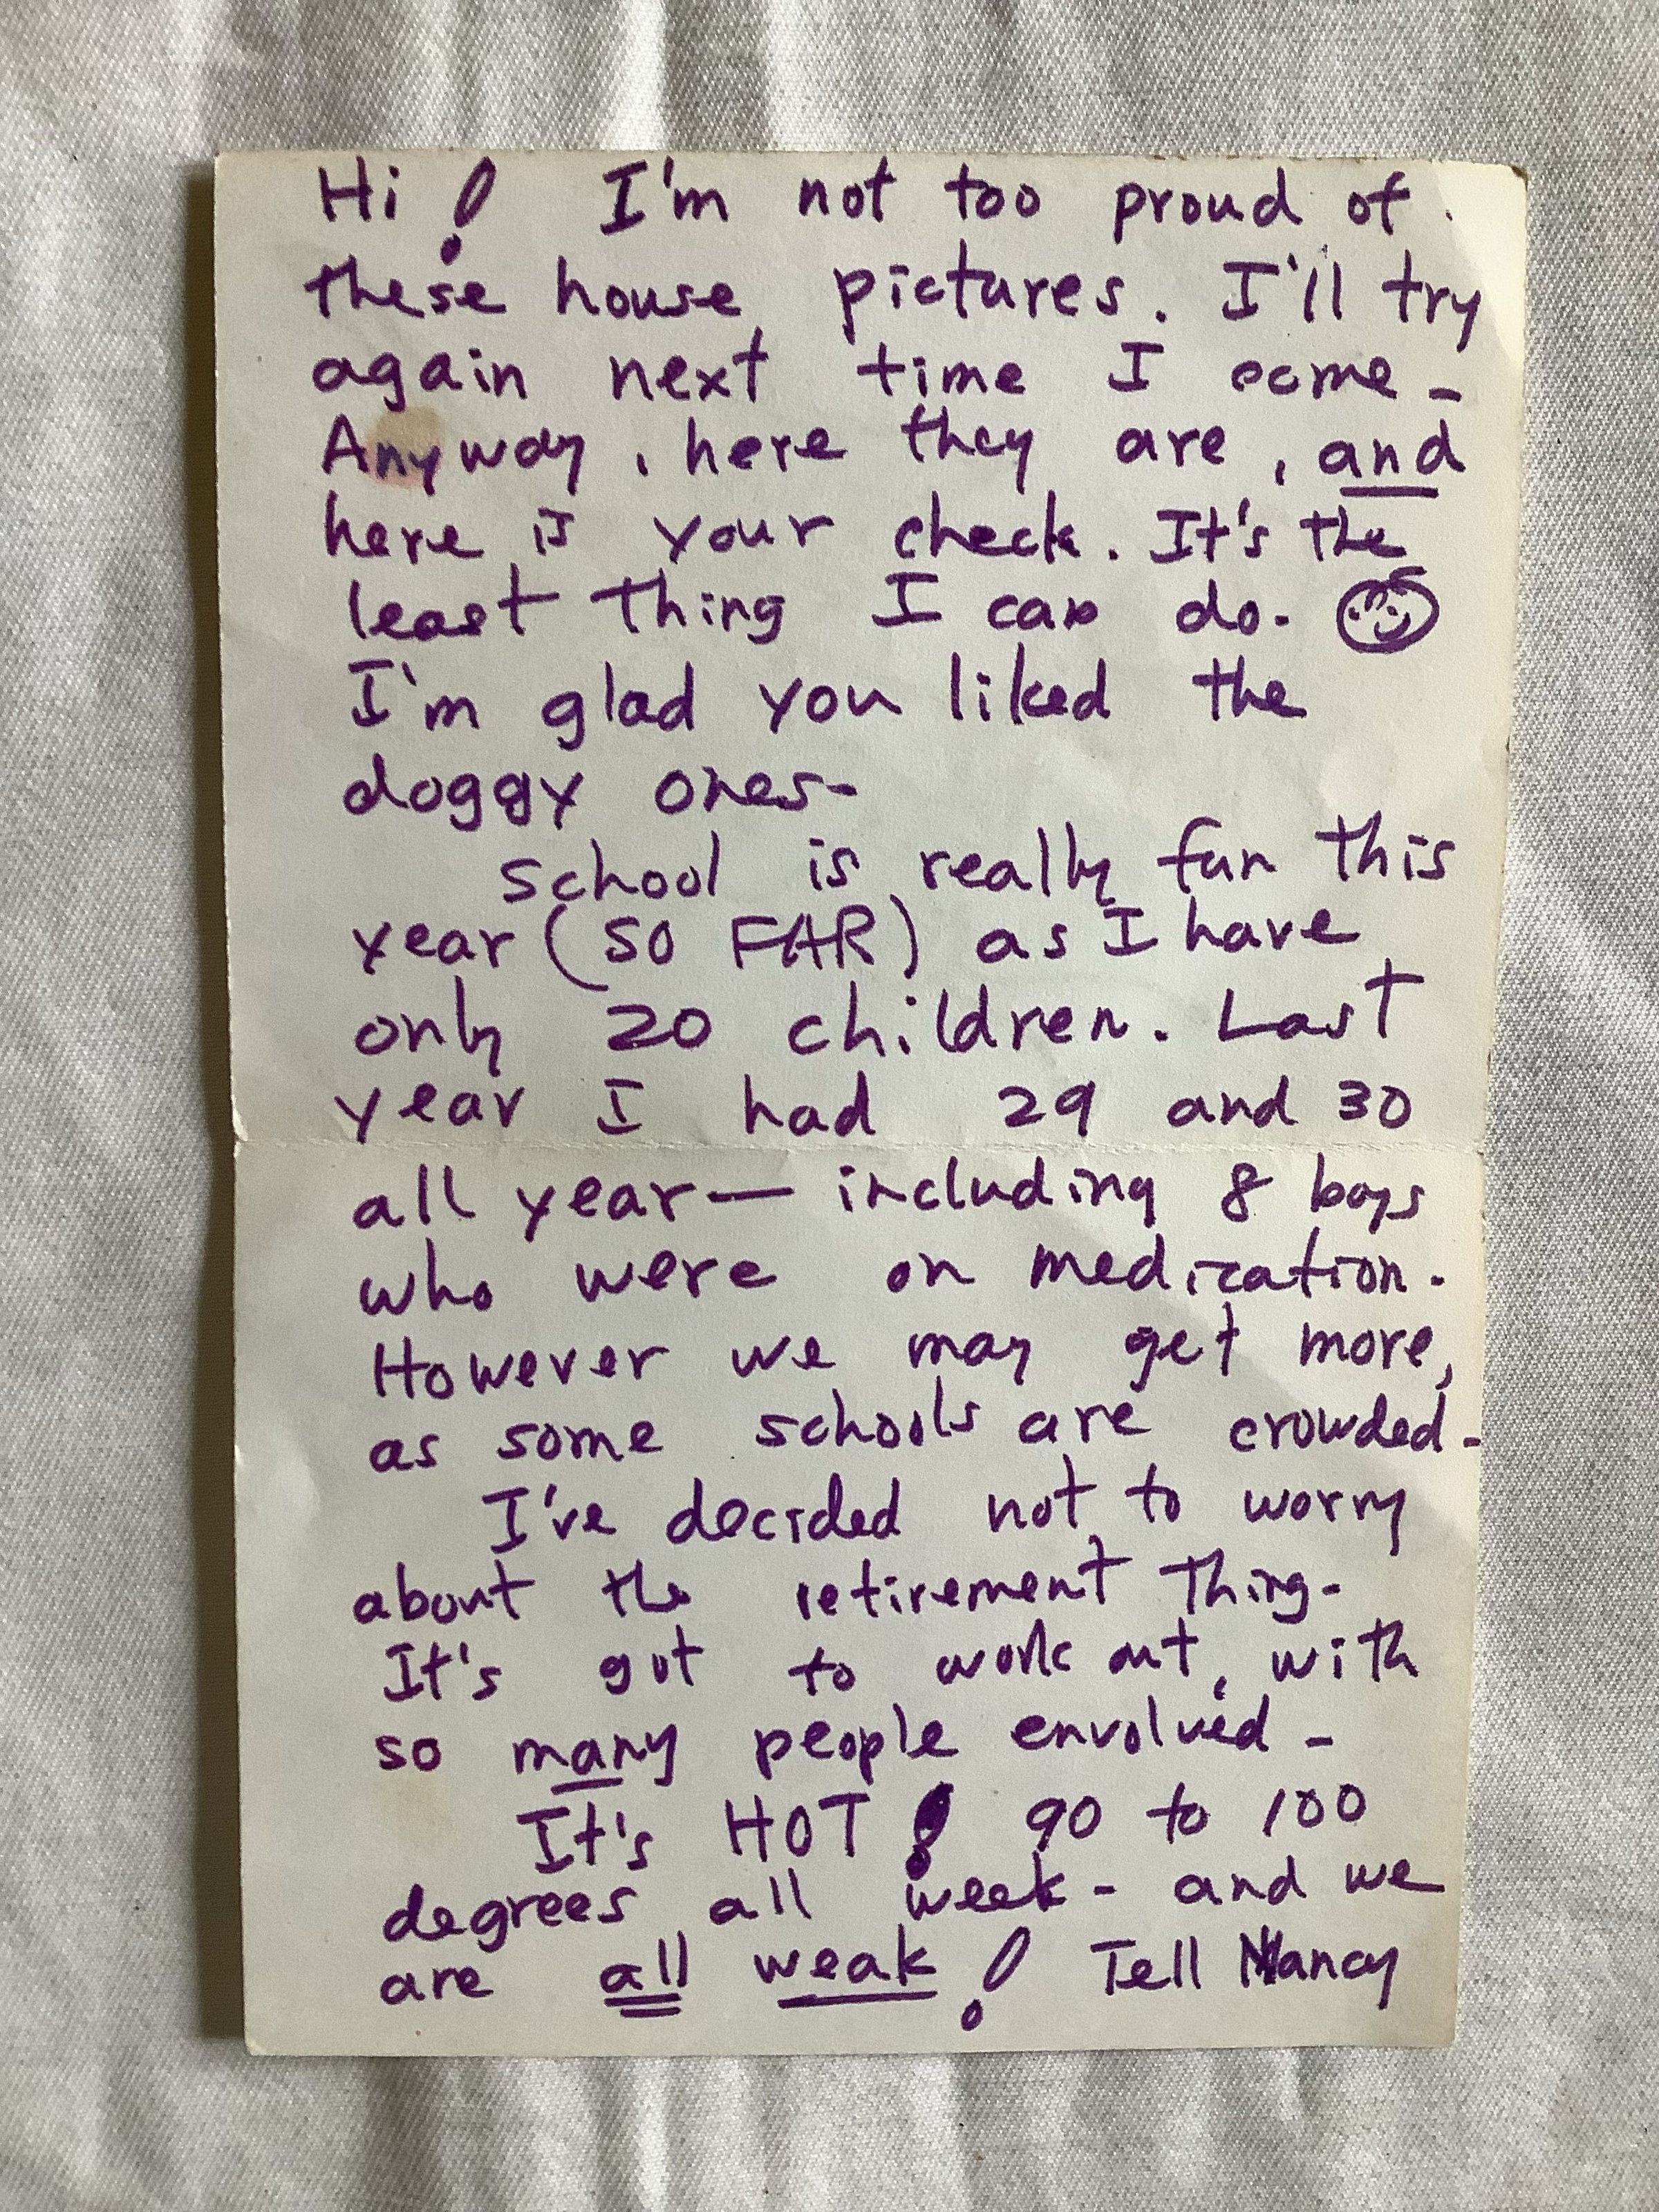 Hi! I'm not too proud of
these house pictures. I'll try
again next time I come -
Anyway, here they are, and
here is your check. It's the
least thing I can do.
I'm glad you liked the
doggy ones-
School is really fun this
year (SO FAR) as I have
only 20 children. Last
year I had 29 and 30
all year — including 8 boys
who were on medication.
However we may get more,
as some schools are crowded-
I've decided not to worry
about the retirement thing-
It's got to work out, with
so many people envolved -
It's HOT! 90 to 100
degrees all week - and we
are all weak! Tell Nancy